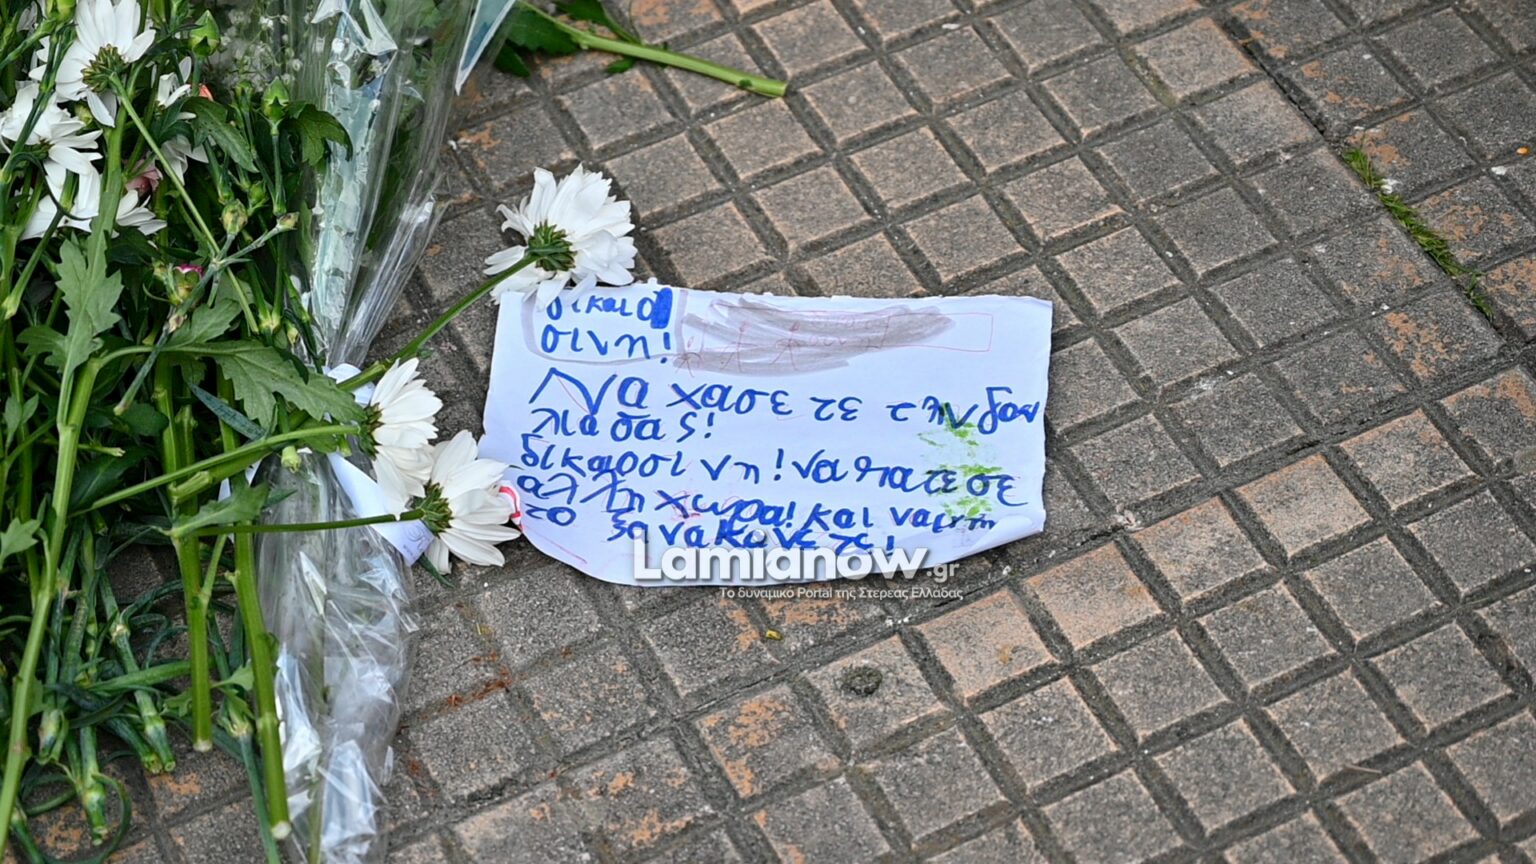 δικαιο
σινη!
Να χασε τε την δου
λια σας!
δικαιοσι νη! να πατε σε
αλλη χωρα! και να μην
το ξανακανε τε!
Lamianow.gr
Το δυναμικό Portal της Στερεάς Ελλάδας